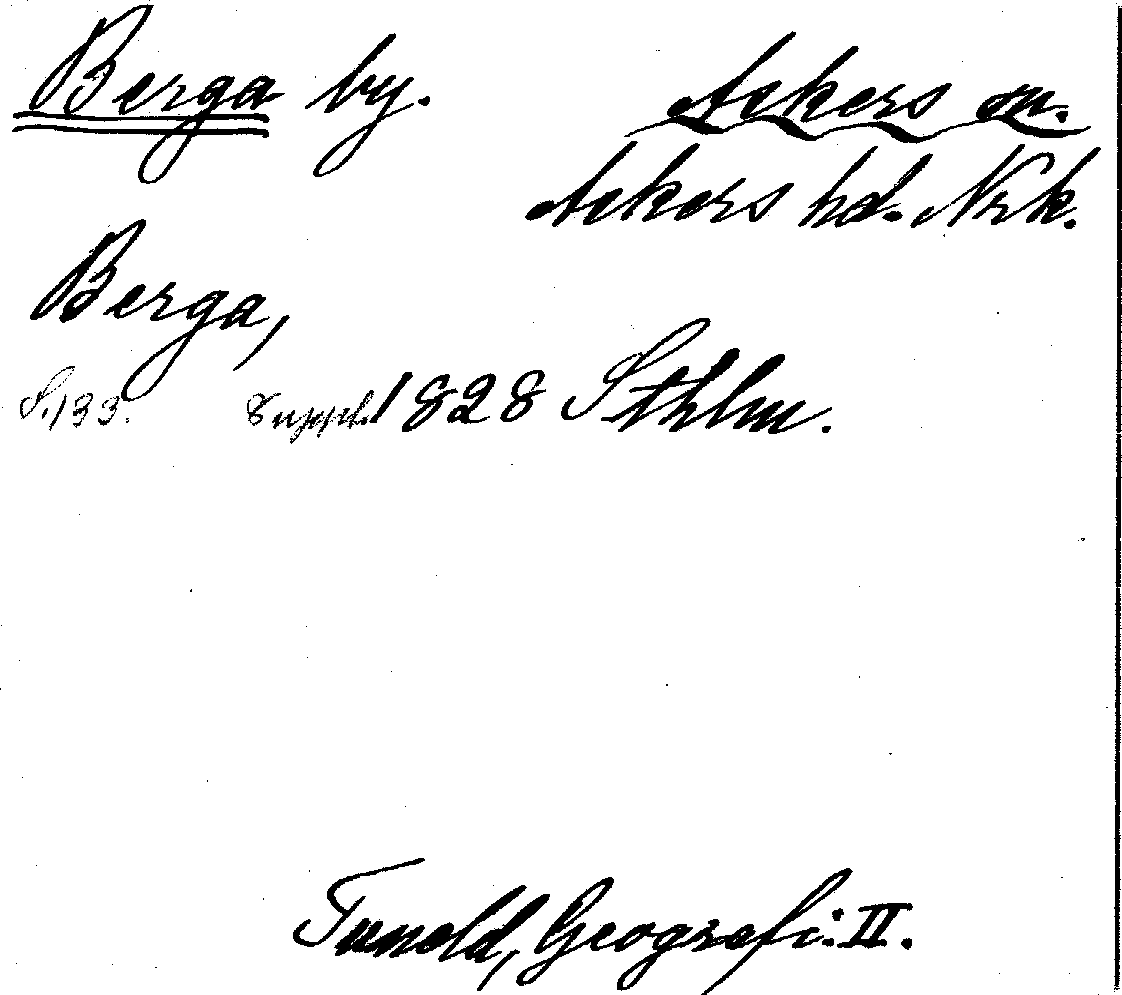 Berga by. Askers sn.
Askers hd. Nrk.
Berga,
S. 133. Suppl. 1828 Sthlm.
Tuneld, Geografi: II.